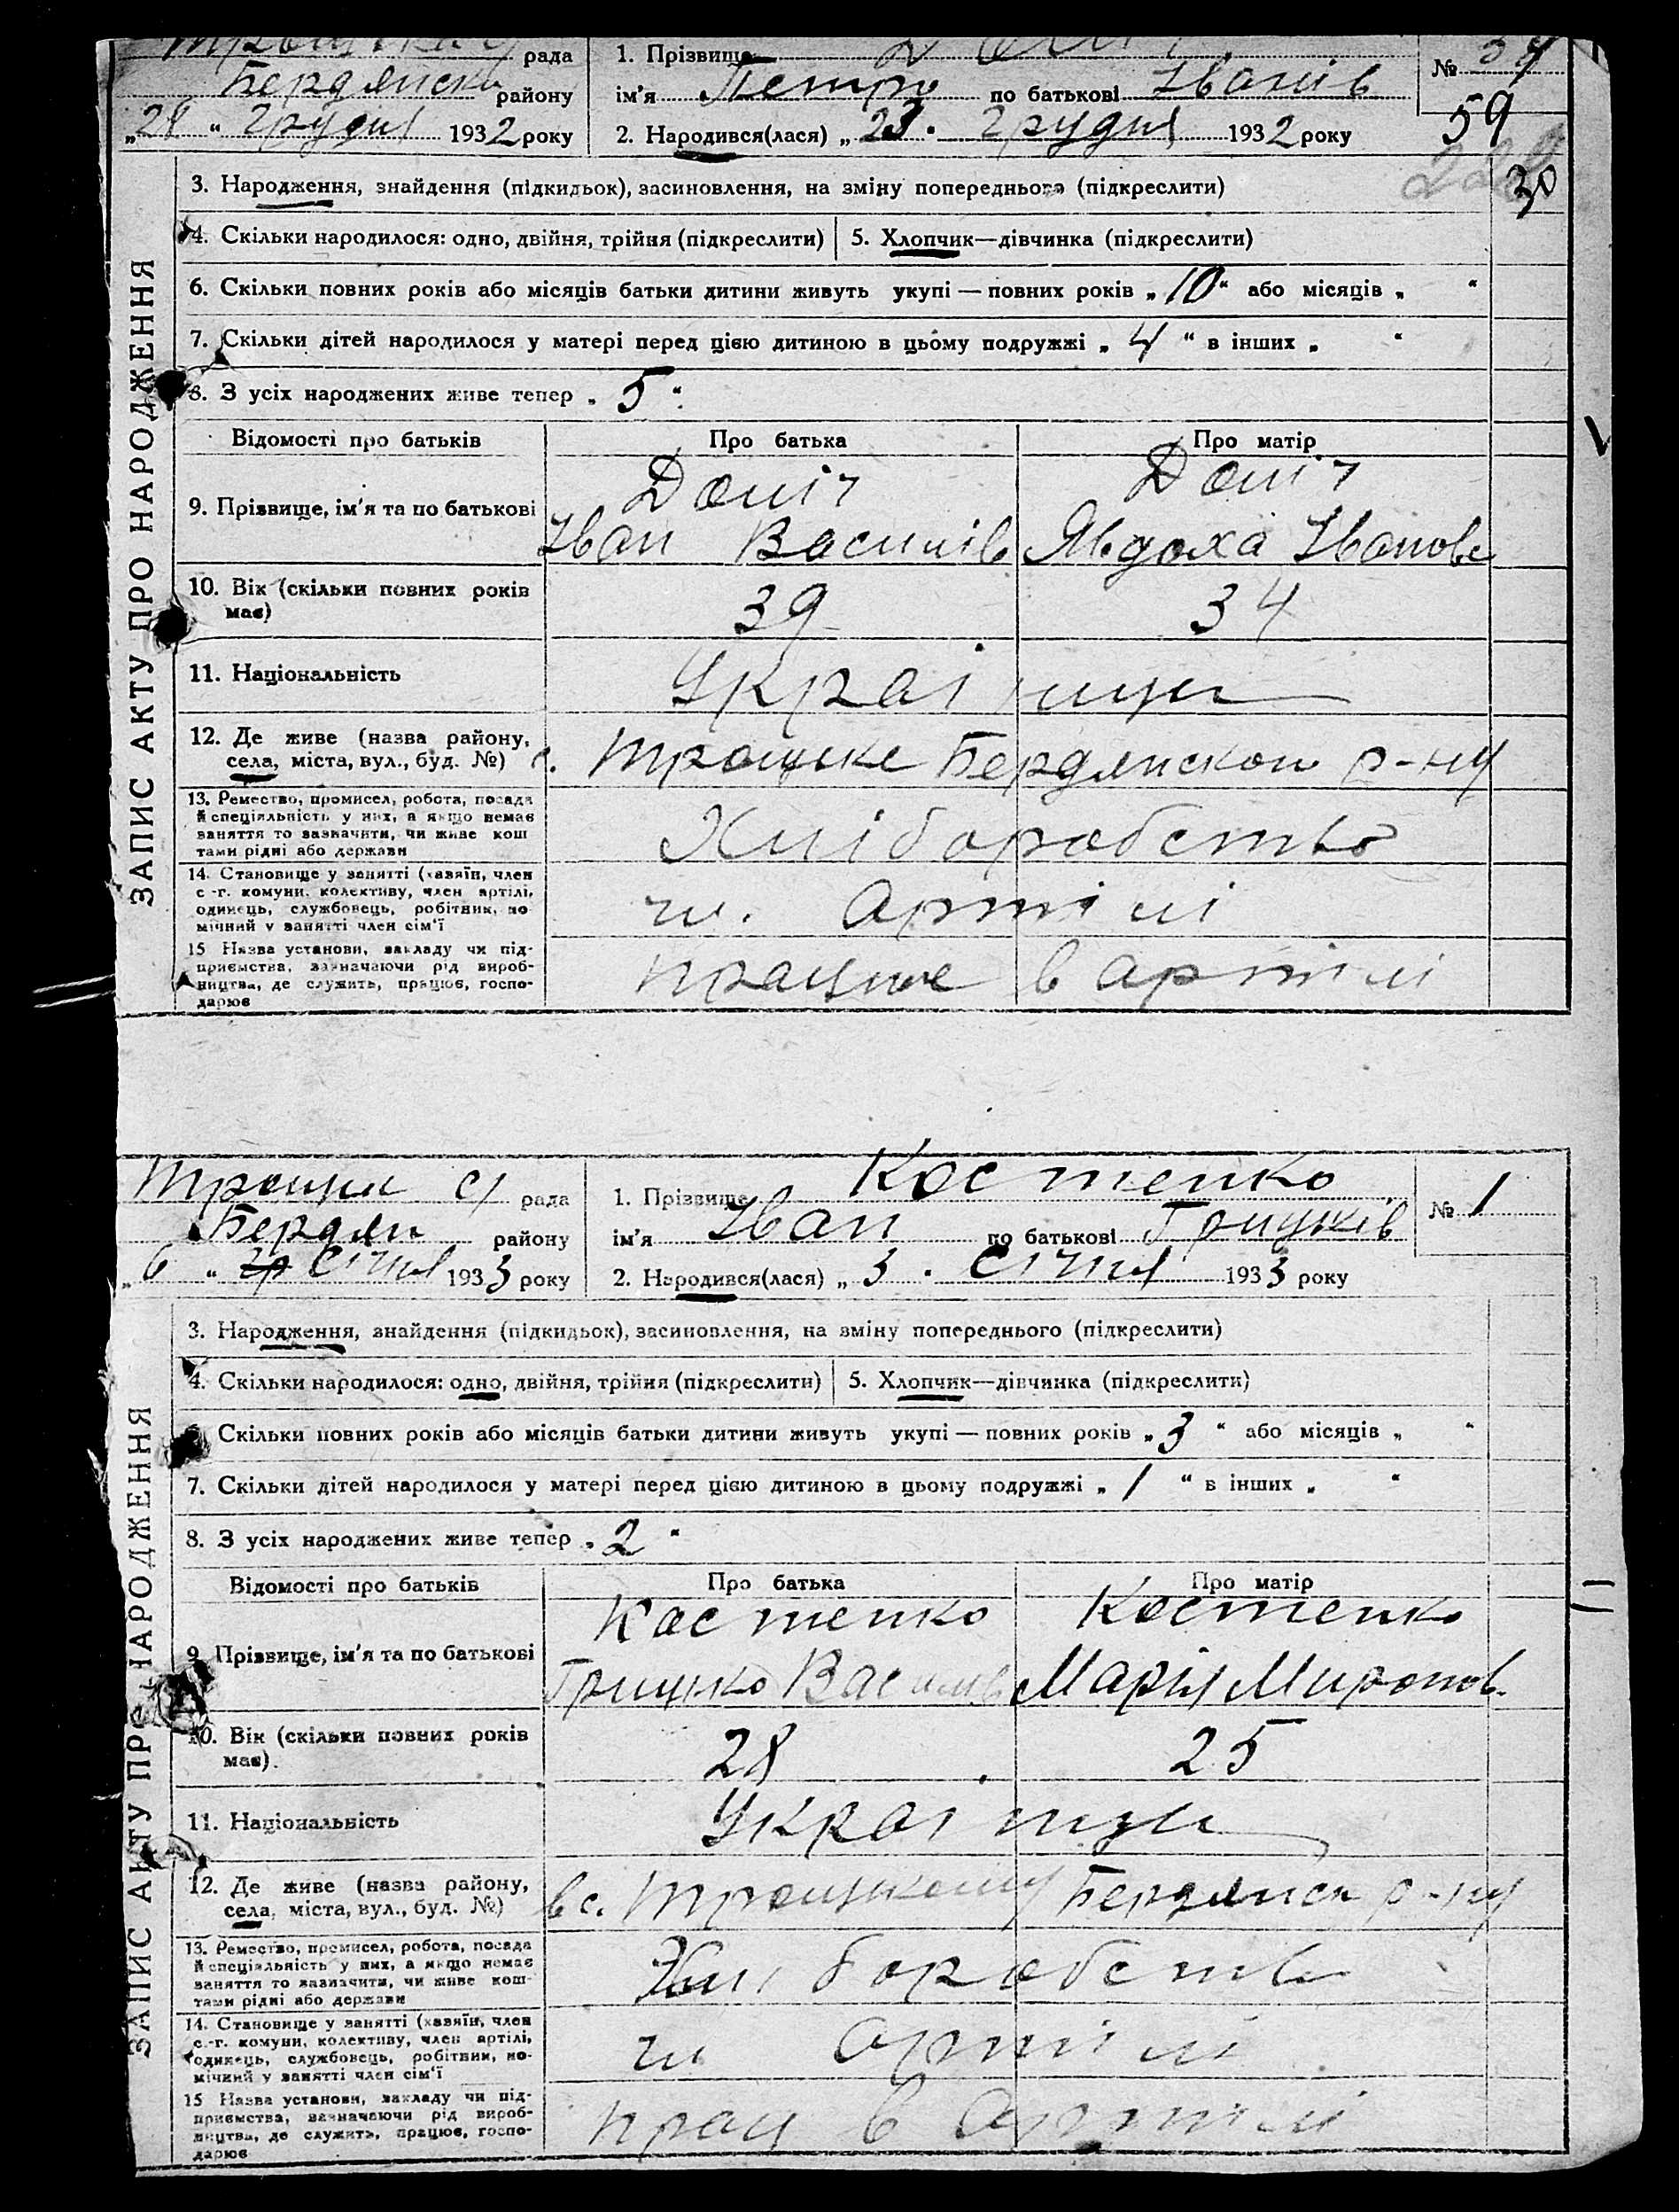 рада
Бердянськ району
„28 “ грудня 1932 року
1. Прізвище
ім'я Петро по батькові Іванів
2. Народився(лася) „ 23. грудня 1932 року
№ 59
59
30
ЗАПИС АКТУ ПРО НАРОДЖЕННЯ
3. Народження, знайдення (підкидьок), засиновлення, на зміну попереднього (підкреслити)
4. Скільки народилося: одно, двійня, трійня (підкреслити) 5. Хлопчик—дівчинка (підкреслити)
6. Скільки повних років або місяців батьки дитини живуть укупі — повних років „ 10 “ або місяців „ “
7. Скільки дітей народилося у матері перед цією дитиною в цьому подружжі „ 4 “ в інших „ “
8. З усіх народжених живе тепер „ 5 “
Відомості про батьків Про батька Про матір
9. Прізвище, ім'я та по батькові
Іван Василів Явдоха Іванов
10. Вік (скільки повних років має) 39 34
11. Національність Українці
12. Де живе (назва району, села, міста, вул., буд. №) с. Троцьке Бердянском р-ну
13. Ремество, промисел, робота, посада
й спеціяльність у них, а якщо немає
заняття то зазначити, чи живе кош
тами рідні або держави
Хліборобство
14. Становище у занятті (хазяїн, член
с.-г. комуни, колективу, член артілі,
одинець, службовець, робітник, по
мічний у занятті член сім'ї
чл. Артілі
15 Назва установи, закладу чи під-
приємства, зазначаючи рід вироб-
ництва, де служить, працює, госпо-
дарює
працює в артілі
Троцьк с/ рада
Бердян району
„ 6 “ січня 1933 року
1. Прізвище Костенко
ім'я Іван по батькові Грицьків
2. Народився(лася) „ 3. Січня 1933 року
№ 1
ЗАПИС АКТУ ПРО НАРОДЖЕННЯ
3. Народження, знайдення (підкидьок), засиновлення, на зміну попереднього (підкреслити)
4. Скільки народилося: одно, двійня, трійня (підкреслити) 5. Хлопчик—дівчинка (підкреслити)
Скільки повних років або місяців батьки дитини живуть укупі — повних років „ 3 “ або місяців „ “
7. Скільки дітей народилося у матері перед цією дитиною в цьому подружжі „ 1 “ в інших „ “
8. З усіх народжених живе тепер „ 2 “
Відомості про батьків Про батька Про матір
Костенко Костенко
9. Прізвище, ім'я та по батькові
Грицько Василів Марія Миронов.
10. Вік (скільки повних років має). 28 25
11. Національність Українци
12. Де живе (назва району, села, міста, вул., буд. №) в с. Троцькому Бердянськ р-ну
13. Ремество, промисел, робота, посада
й спеціяльність у них, а якщо немає
заняття то зазначити, чи живе кош-
тами рідні або держави
Хліборобств
14. Становище у занятті (хазяїн, член
с.-г. комуни, колективу, член артілі,
одинець, службовець, робітник, по-
мічний у занятті член сім'ї
чл артілі
15 Назва установи, закладу чи під-
приємства, зазначаючи рід вироб-
ництва, де служить, працює, госпо-
дарює
прац в Артілі